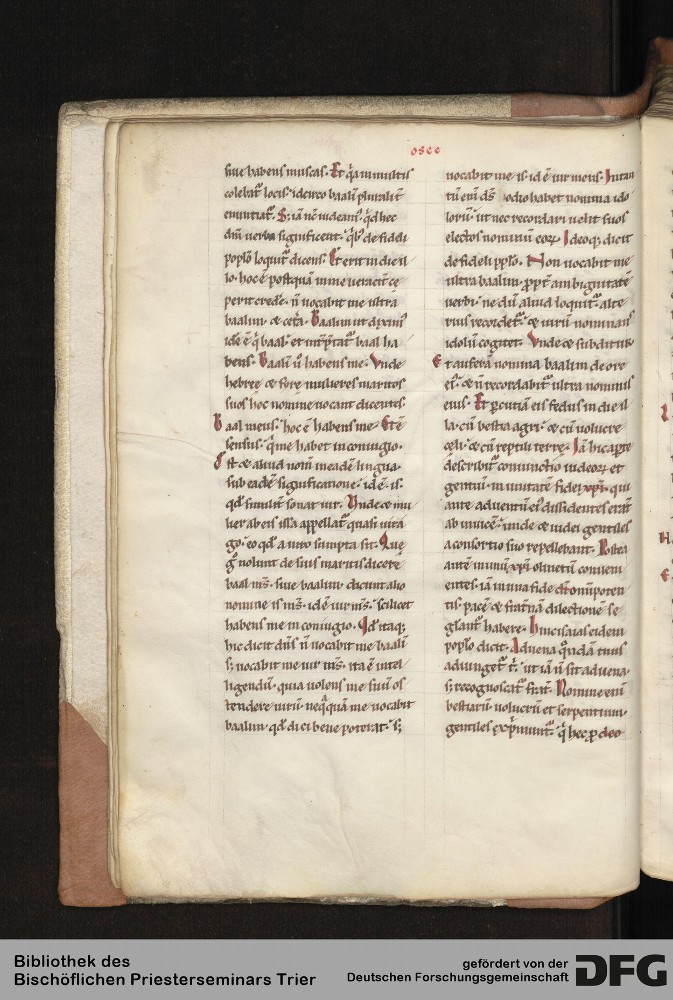 osee
siue habens muscas. Et q̄a in multis
colebat᷑ locis. idcirco baalī pluralit᷑
enuntiat᷑. S; iā nē uideam᷒ q̇d hec
dn̄i uerba significent. q̇b᷒ de fideli
pop̄lo loquit᷑ dicens. Et erit in die il
lo. hoc ē postquā in me ueracit᷑ ce
perit crede. n̄ uocabit me ultra
baalim. & cet̃a. Baalim ut dixim᷒
id ē q̇ baal. et int̃p̃tat᷑ baal ha
bens. Baali ū habens me. Vnde
hebree & syre mulieres maritos
suos hoc nomine uocant dicentes.
Baal meus. hoc ē habens me. Et ē
sensus. q̇ me habet in coniugio.
Est & aliud nom̄ in eadē lingua.
sub eadē significatione. id ē. is.
qd̄ similit᷑ sonat uir. Vnde & mu
lier ab eis issa appellat᷑ quasi uira
go. eo qd̄ a uiro sumpta sit. Que
g̊ nolunt de suis maritis dicere
baal m̄s. siue baalim. dicunt alio
nomine is m̄s. id ē uir m̄s. scilicet
habens me in coniugio. Qd̄ itaq;
hic dicit dn̄s n̄ uocabit me baali
s; uocabit me uir m̄s. ita ē intel
ligendū. quia uolens me suū os
tendere uirū. neq̇quā me uocabit
baalim. qd̄ dici beue poterat. s;
uocabit me is. id ē uir meus. Intan
tū enī dn̄s odio habet nomina ido
lorū. ut nec recordari uelit suos
electos nominū eoꝝ. Ideoq; dicit
de fideli pp̄lo. Non uocabit me
ultra baalim. ꝓpt̃ ambiguitatē
uerbi. ne dū aliud loquit᷑. alte
rius recordet᷑. & uirū nominans
idolū cogitet. Vnde & subditur.
Et auferā nomina baalim de ore
ei᷒. & n̄ recordabit᷑ ultra nominis
eius. Et ꝑcutiā eis fedus in die il
la. cū bestia agri. & cū uolucre
celi. & cū reptili terre. Iā hic aꝑte
describit᷑ coniunctio iudeoꝝ et
gentiū. in unitate fidei xp̄i. qui
ante aduentū ei᷒ dissidentes erāt
ab inuicē. unde & iudei gentiles
a consortio suo repellebant. Postea
autē in unū xp̄i ouile conueni
entes. iā in una fide di omnipoten
tis pacē & frat̃nā dilectione se
glant᷑ habere. Hinc isaias eidem
pop̄lo dicit. Aduena q̇ndā tuus
adiunget᷑ t̄. ut iā n̄ sit aduena.
s; recognoscat᷑ frat̃. Nomine enī
bestiarū. uolucrū et serpentium.
gentiles exp̃munt᷑. q̇ hec ꝓ deo
Bibliothek des
Bischöflichen Priesterseminars Trier
gefördert von der
Deutschen Forschungsgemeinschaft
DFG